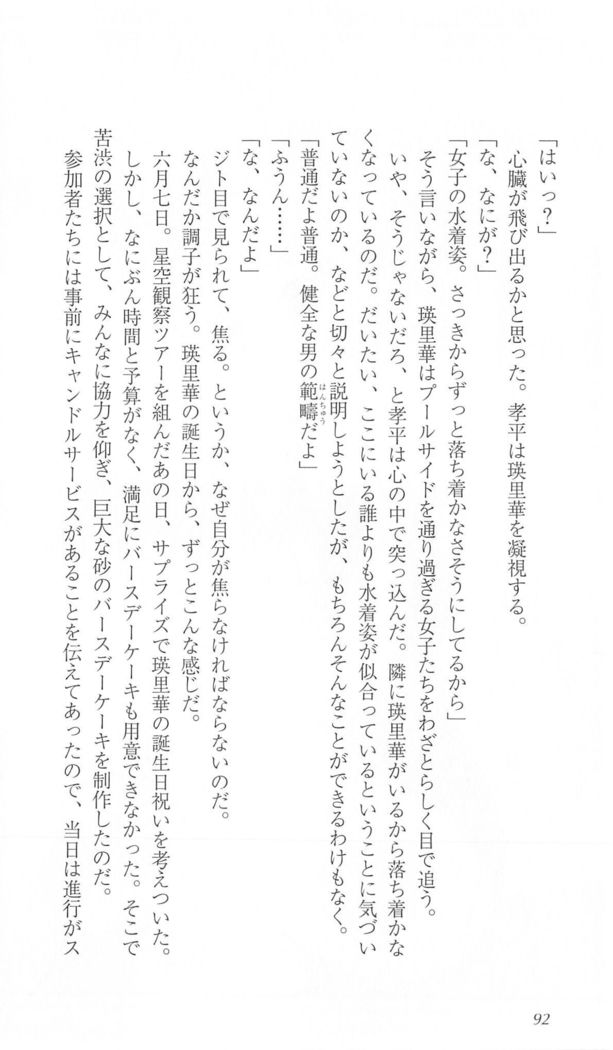 「はいっ？」
心臓が飛び出るかと思った。孝平は瑛里華を凝視する。
「な、なにが？」
「女子の水着姿。さっきからずっと落ち着かなさそうにしてるから」
そう言いながら、瑛里華はプールサイドを通り過ぎる女子たちをわざとらしく目で追う。
いや、そうじゃないだろ、と孝平は心の中で突っ込んだ。隣に瑛里華がいるから落ち着かな
くなっているのだ。だいたい、ここにいる誰よりも水着姿が似合っているということに気づい
ていないのか、などと切々と説明しようとしたが、もちろんそんなことができるわけもなく。
「普通だよ普通。健全な男の範疇だよ」
はんちゅう
「ふうん……」
「な、なんだよ」
ジト目で見られて、焦る。というか、なぜ自分が焦らなければならないのだ。
なんだか調子が狂う。瑛里華の誕生日から、ずっとこんな感じだ。
六月七日。星空観察ツアーを組んだあの日、サプライズで瑛里華の誕生日祝いを考えついた。
しかし、なにぶん時間と予算がなく、満足にバースデーケーキも用意できなかった。そこで
苦渋の選択として、みんなに協力を仰ぎ、巨大な砂のバースデーケーキを制作したのだ。
参加者たちには事前にキャンドルサービスがあることを伝えてあったので、当日は進行がス
92